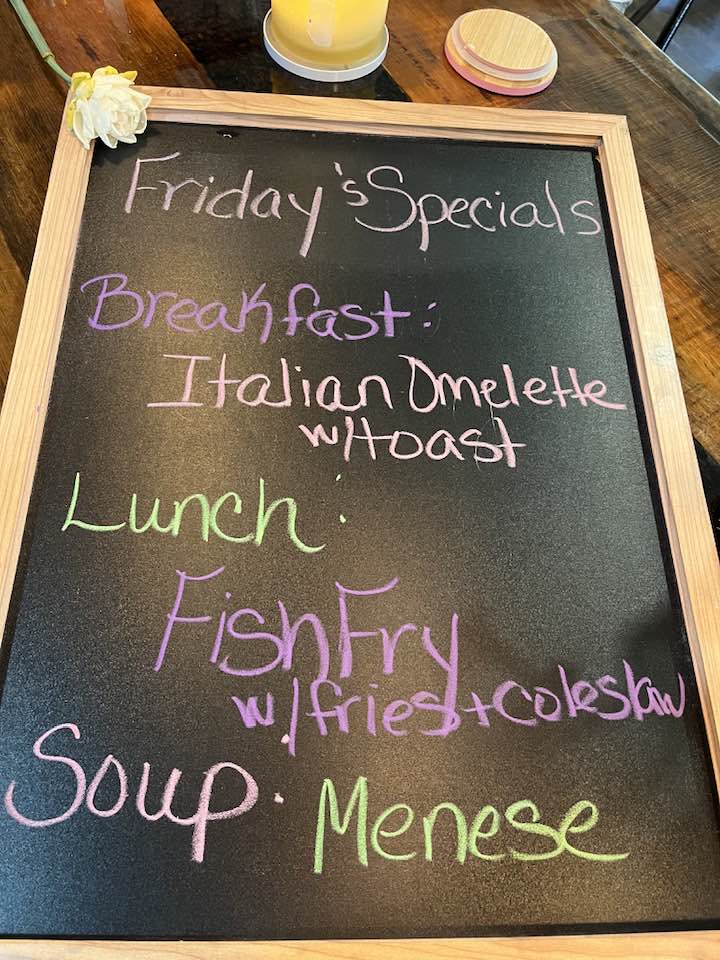 Friday's Specials
Breakfast:
Italian Omelette
w/toast
Lunch:
Fish Fry
w/fries + coleslaw
Soup. Menese